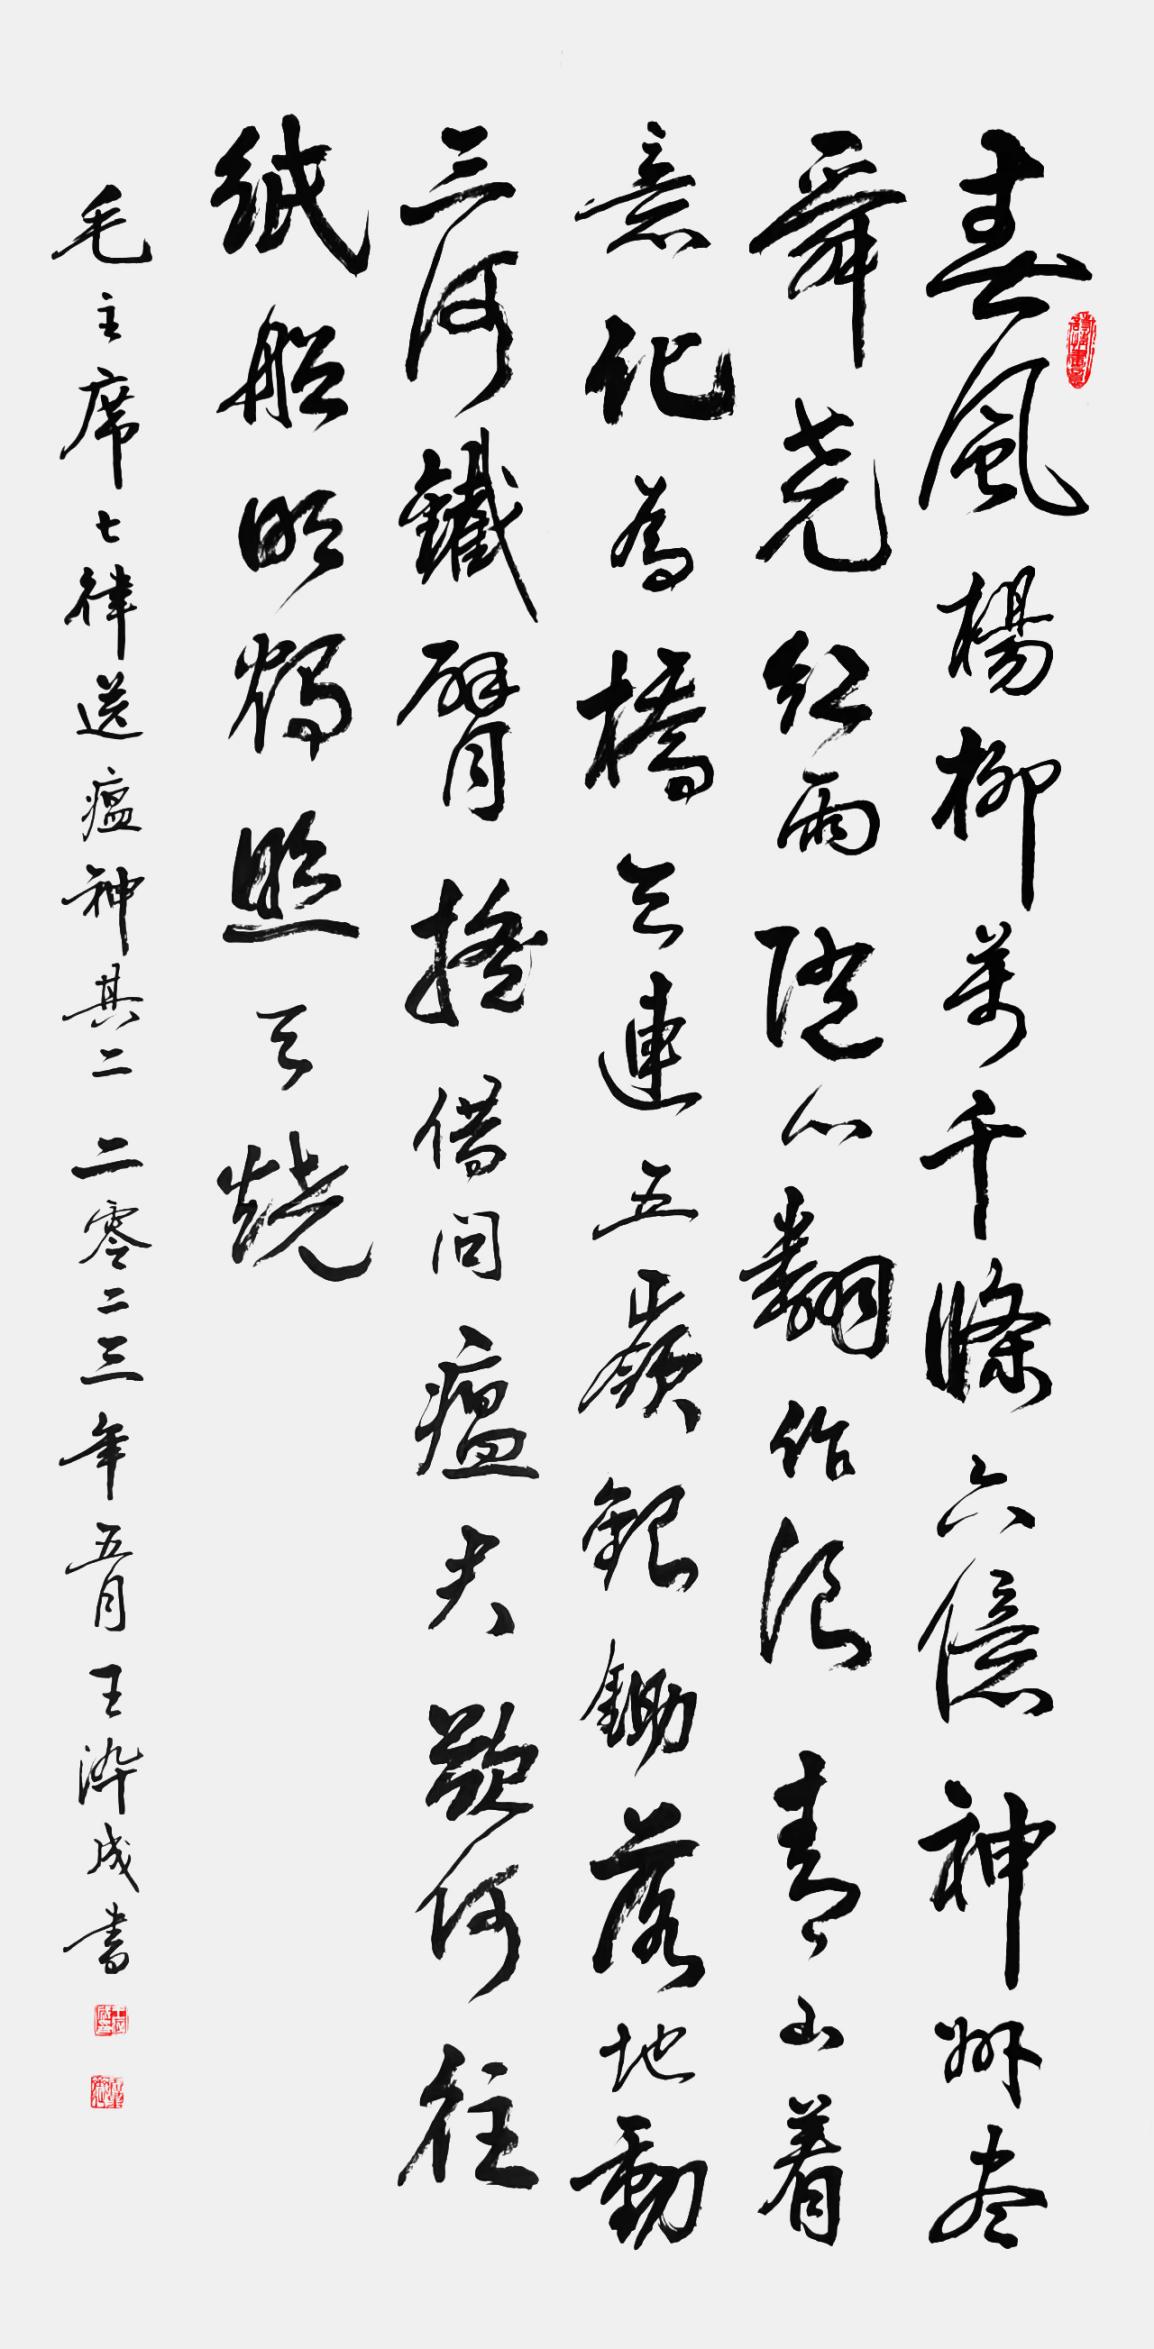 春風楊柳萬千條六億神州尽
舜尧红雨随心翻作浪青山着
意化為橋天連五嶺銀鋤落地動
三河鐵臂搖借问瘟君欲何往
纸船明燭照天燒
毛主席七律送瘟神其二 二零二三年五月王 成書